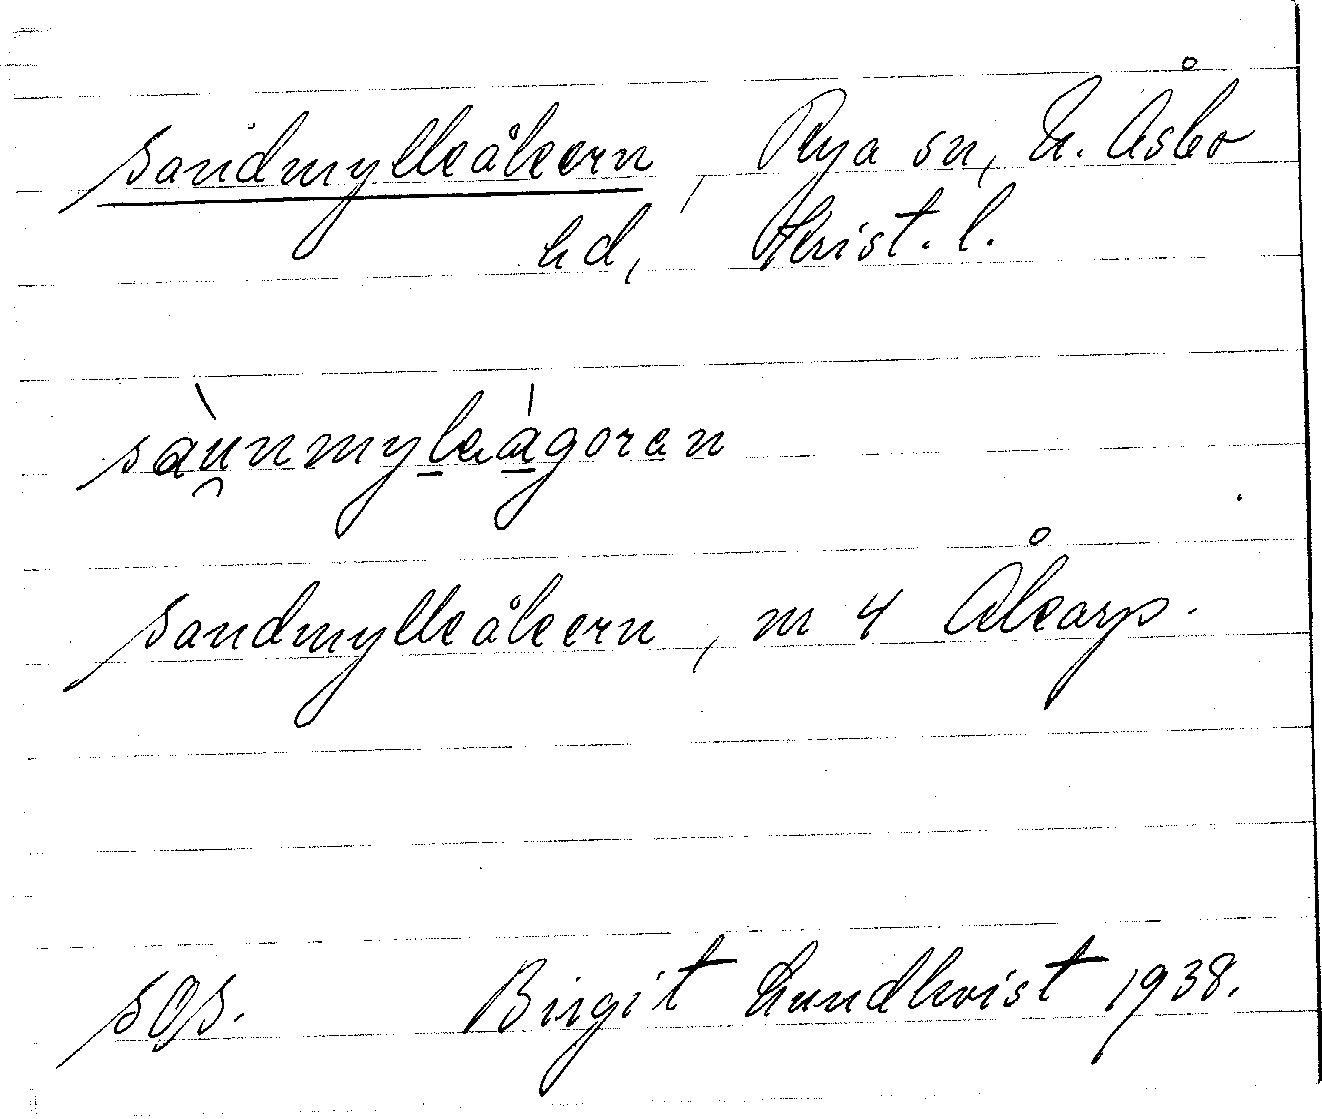 sandmylleåkern, Rya sn, N. Åsbo
hd, Krist. l.
sàu̯nmylaágoran
sandmylleåkern, m 4 Åkarp.
sgs. Birgit Lundkvist 1938.